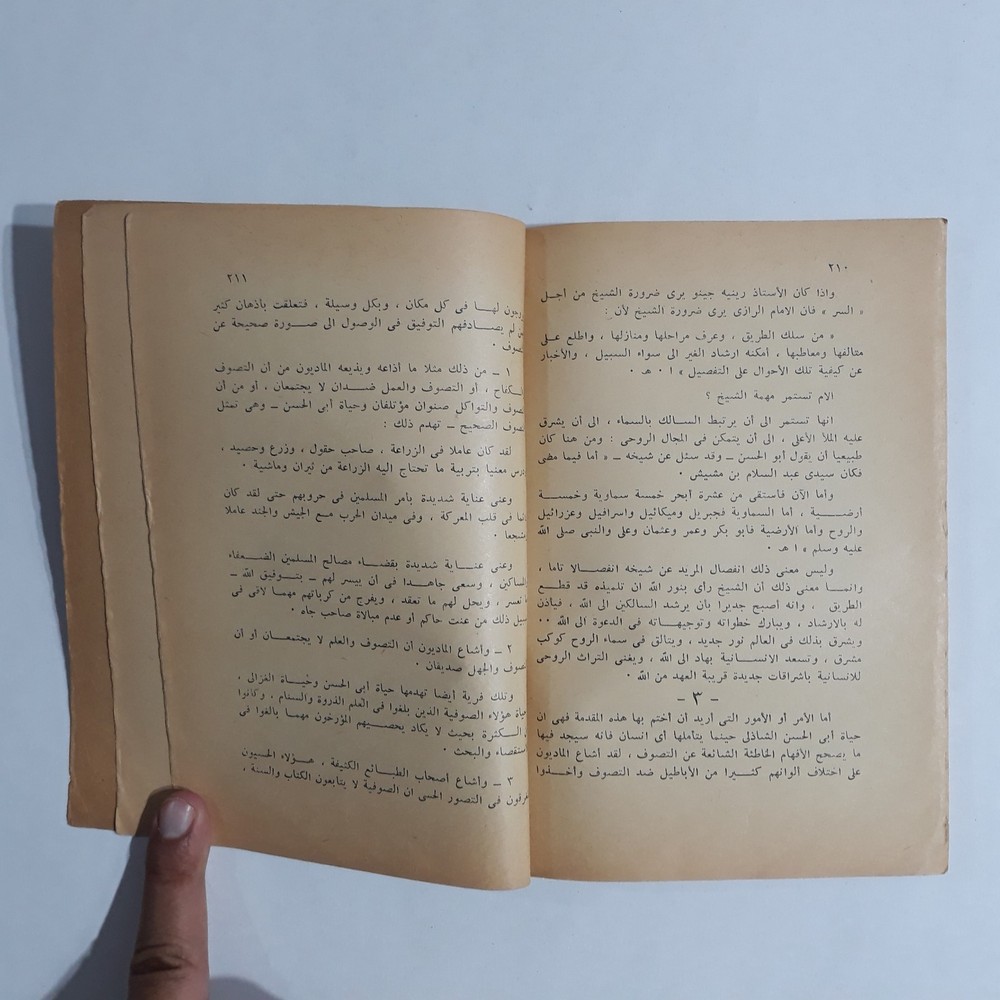 ٢١٠
واذا كان الأستاذ رينيه جينو يرى ضرورة الشيخ من أجل
« السر » فان الامام الرازى يرى ضرورة الشيخ لأن :
« من سلك الطريق ، وعرف مراحلها ومنازلها ، واطلع على
متالفها ومعاطبها ، أمكنه ارشاد الغير الى سواء السبيل ، والأخبار
عن كيفية تلك الأحوال على التفصيل » ا . هـ .
الام تستمر مهمة الشيخ ؟
انها تستمر الى أن يرتبط السالك بالسماء ، الى أن يشرق
عليه الملأ الأعلى ، الى أن يتمكن فى المجال الروحى : ومن هنا كان
طبيعيا أن يقول أبو الحسن ــ وقد سئل عن شيخه ــ « أما فيما مضى
فكان سيدى عبد السلام بن مشيش .
وأما الآن فاستقى من عشرة أبحر خمسة سماوية وخمسة
أرضية ، أما السماوية فجبريل وميكائيل واسرافيل وعزرائيل
والروح وأما الأرضية فابو بكر وعمر وعثمان وعلى والنبى صلى الله
عليه وسلم » ا هـ .
وليس معنى ذلك انفصال المريد عن شيخه انفصالا تاما ،
وانما معنى ذلك أن الشيخ رأى بنور الله ان تلميذه قد قطع
الطريق ، وانه أصبح جديرا بأن يرشد السالكين الى الله ، فيأذن
له بالارشاد ، ويبارك خطواته وتوجيهاته فى الدعوة الى الله ..
ويشرق بذلك فى العالم نور جديد ، ويتألق فى سماء الروح كوكب
مشرق ، وتسعد الانسانية بهاد الى الله ، ويغنى التراث الروحى
للانسانية باشراقات جديدة قريبة العهد من الله .
- ٣ -
أما الأمر أو الأمور التى أريد أن أختم بها هذه المقدمة فهى ان
حياة أبى الحسن الشاذلى حينما يتأملها أى انسان فانه سيجد فيها
ما يصحح الأفهام الخاطئة الشائعة عن التصوف ، لقد أشاع الماديون
على اختلاف ألوانهم كثيرا من الأباطيل ضد التصوف وأخذوا
٢١١
لها فى كل مكان ، وبكل وسيلة ، فتعلقت بأذهان كثير
لم يصادفهم التوفيق فى الوصول الى صورة صحيحة عن
١ ــ من ذلك مثلا ما أذاعه ويذيعه الماديون من أن التصوف
، أو التصوف والعمل ضدان لا يجتمعان ، أو من أن
والتواكل صنوان مؤتلفان وحياة أبى الحسن ــ وهى تمثل
الصحيح ــ تهدم ذلك :
لقد كان عاملا فى الزراعة ، صاحب حقول ، وزرع وحصيد ،
معنيا بتربية ما تحتاج اليه الزراعة من ثيران وماشية .
وعنى عناية شديدة بأمر المسلمين فى حروبهم حتى لقد كان
فى قلب المعركة ، وفى ميدان الحرب مع الجيش والجند عاملا
وعنى عناية شديدة بقضاء مصالح المسلمين الضعفاء
، وسعى جاهدا فى أن ييسر لهم ــ بتوفيق الله ــ
تعسر ، ويحل لهم ما تعقد ، ويفرج من كرباتهم مهما لاقى فى
ذلك من عنت حاكم أو عدم مبالاة صاحب جاه .
٢ ــ وأشاع الماديون ان التصوف والعلم لا يجتمعان او ان
والجهل صديقان .
وتلك فرية أيضا تهدمها حياة أبى الحسن وحياة الغزالى .
هؤلاء الصوفية الذين بلغوا فى العلم الذروة والسنام . وكانوا
الكثرة بحيث لا يكاد يحصيهم المؤرخون مهما بالغوا فى
والبحث .
٣ ــ وأشاع أصحاب الطبائع الكثيفة ، هؤلاء الحسيون
فى التصور الحسى ان الصوفية لا يتابعون الكتاب والسنة .